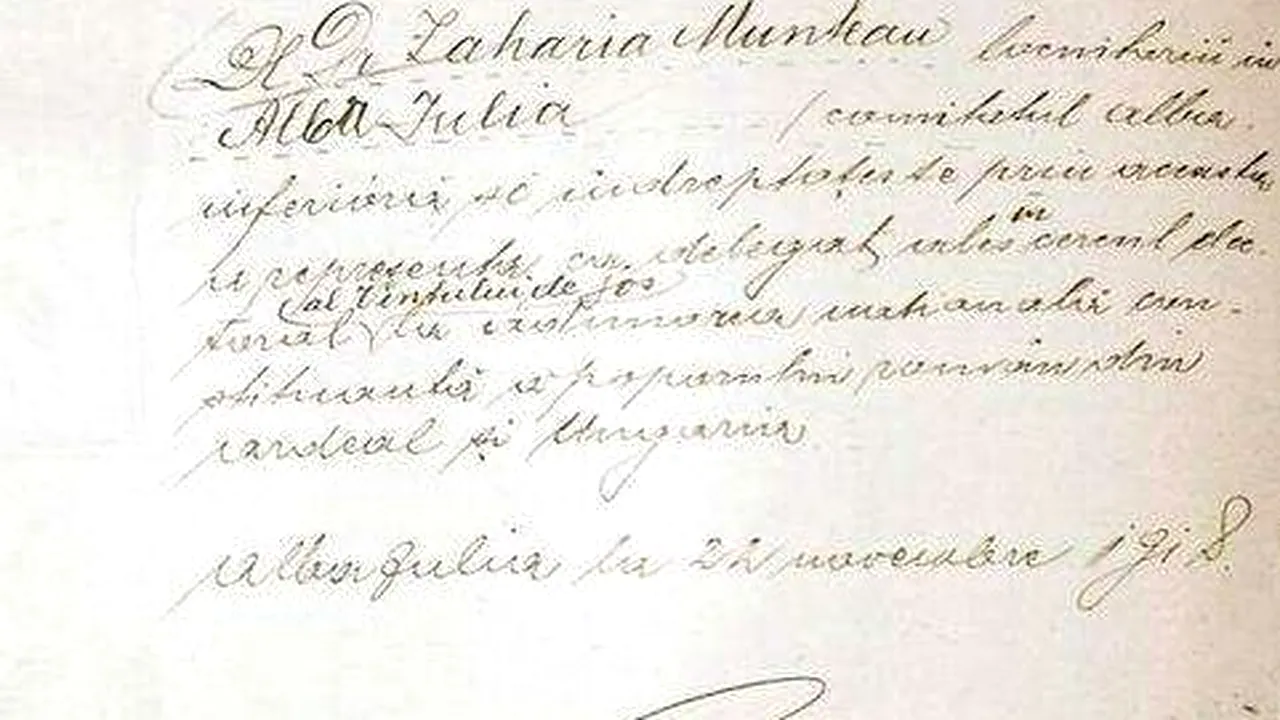 Dl Dr Zaharia Muntean locuitoriu in
Alba Iulia (comitetul alba
inferióră se indreptateste prin aceasta
a representa ca delegat ales in cercul elec-
al Vintului de jos
toral la adunarea natională con-
stituantă a poporului român din
Ardeal și Ungaria
Alba Iulia la 22 novembre 1918.